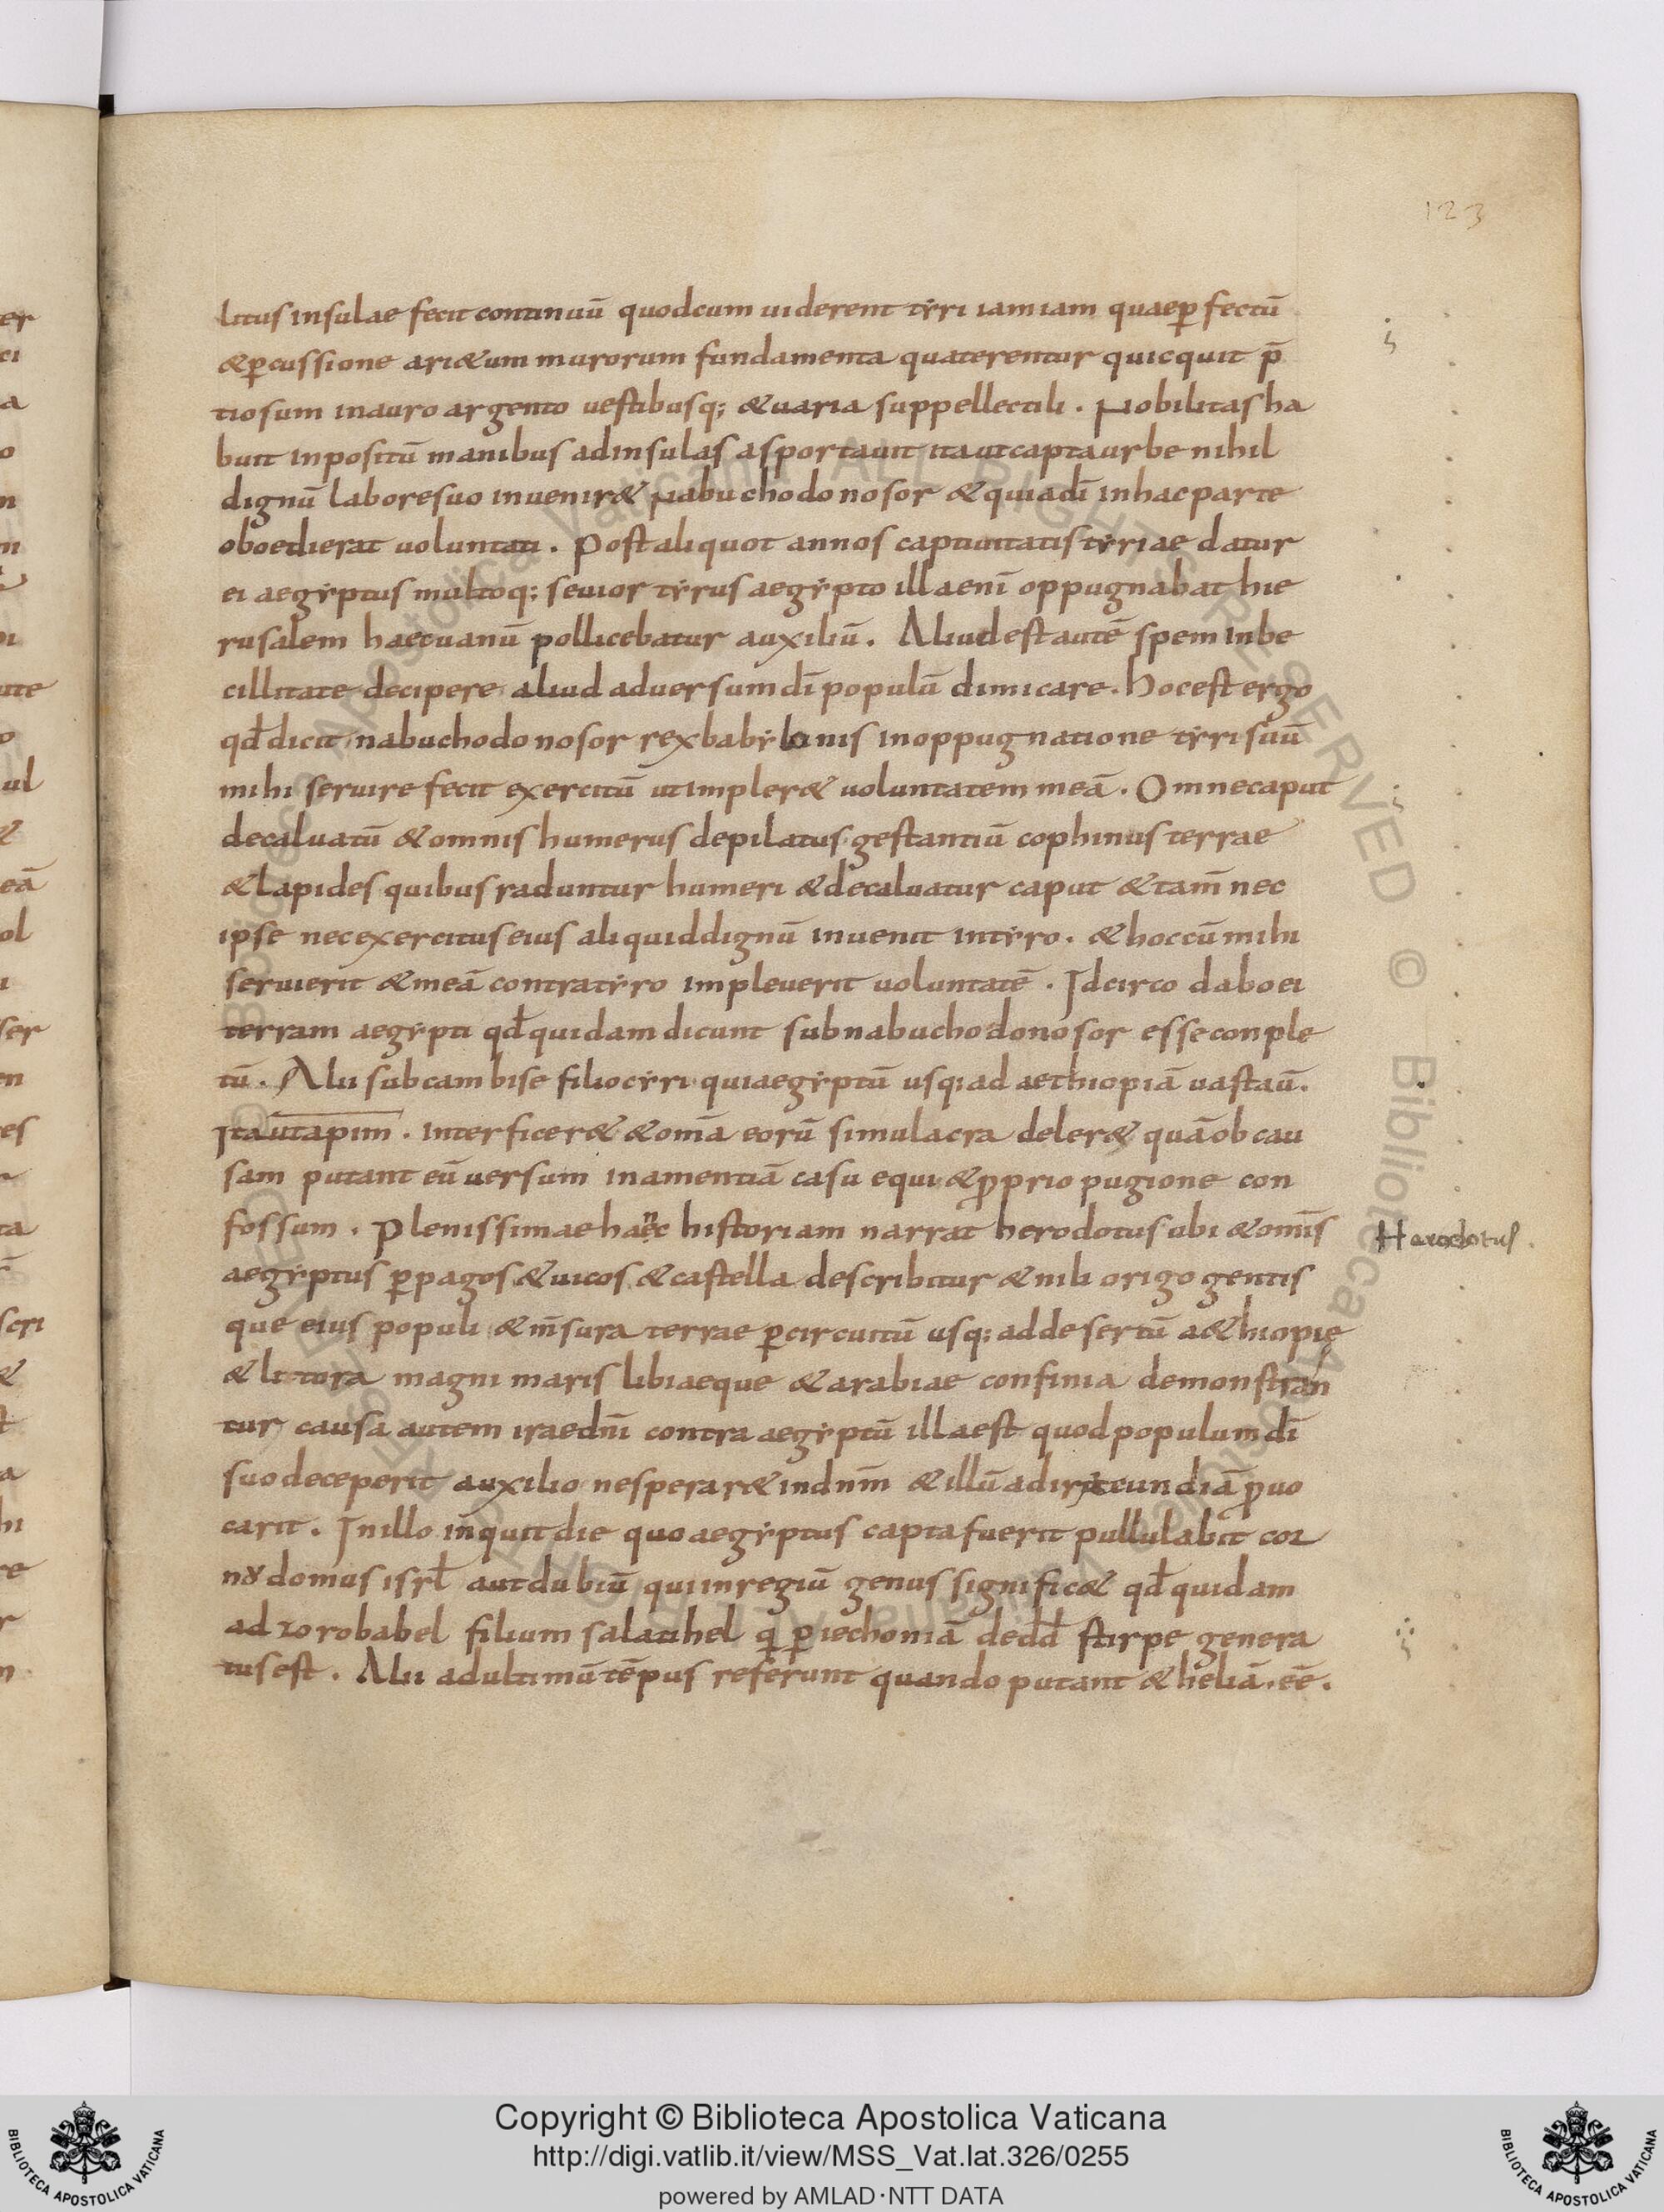 123
litus insulae fecit continuū quodcum uiderent tẏri iamiam quaeꝑfectū
&ꝑcussione ari&um murorum fundamenta quaterentur quicquit p̄
tiosum inauro argento uestibusq; &uaria suppellectili . Nobilitas ha
buit inpositū manibus adinsulas asportauit itautcaptaurbe nihil
dignū laboresuo inuenir& Nabuchodonosor &quiadī inhacparte
oboedierat uoluntati . Postaliquot annos captiuitatis tẏriae datur
ei aegẏptus multoq; seuior tẏrus aegẏpto illaenī oppugnabat hie
rusalem haecuanū pollicebatur auxiliū . Aliudestautē spem inbe
cillitate decipere aliud aduersumdī populū dimicare . hocest ergo
qđdicit nabuchodonosor rexbabẏlonis inoppugnatione tẏri suū
mihi seruire fecit exercitū utimpler& uoluntatem meā . Omnecaput
decaluatū &omnis humerus depilatus gestantiū cophinus terrae
&lapides quibus raduntur humeri &decaluatur caput &tam̄ nec
ipse necexercituseius aliquiddignū inuenit intẏro . &hoccūmihi
seruierit &meā contratẏro impleuerit uoluntatē . Idcirco daboei
terram aegẏpti qđquidamdicunt subnabuchodonosor esseconple
tū . Alii subcambise filiocẏri quiaegẏptū usq; ad aethiopiā uastaū .
Itautapim . interficer& &om̄a eorū simulacra deler& quāob cau
sam putant eū uersum inamentiā casu equi &ꝓprio pugione con
fossum . Plenissimaehanc historiam narrat herodotus ubi &om̄is
Herodotus .
aegẏptus ꝑpagos &uicos &castella describitur &nili origo gentis
que eius populi &m̄sura terrae ꝑcircuitū usq; addesertū a&hiopię
&littora magni maris libiaeque &arabiae confinia demonstran
tur causa autem iraedn̄i contra aegẏptū illaest quodpopulumdī
suodeceperit auxilio nesperar&indnm̄ &illū adiracundiā ꝓuo
carit . Inillo inquit die quoaegẏptus captafuerit pullulabit cor
nu domus isrł autdubiū quiinregiū genus signific& qđquidam
ad zorobabel filium salatihel q ꝑiechoniā dedđ stirpe genera
tusest . Alii adultimū tēpus referunt quando putant &heliā . eē .
Copyright © Biblioteca Apostolica Vaticana
http://digi.vatlib.it/view/MSS_Vat.lat.326/0255
powered by AMLAD·NTT DATA